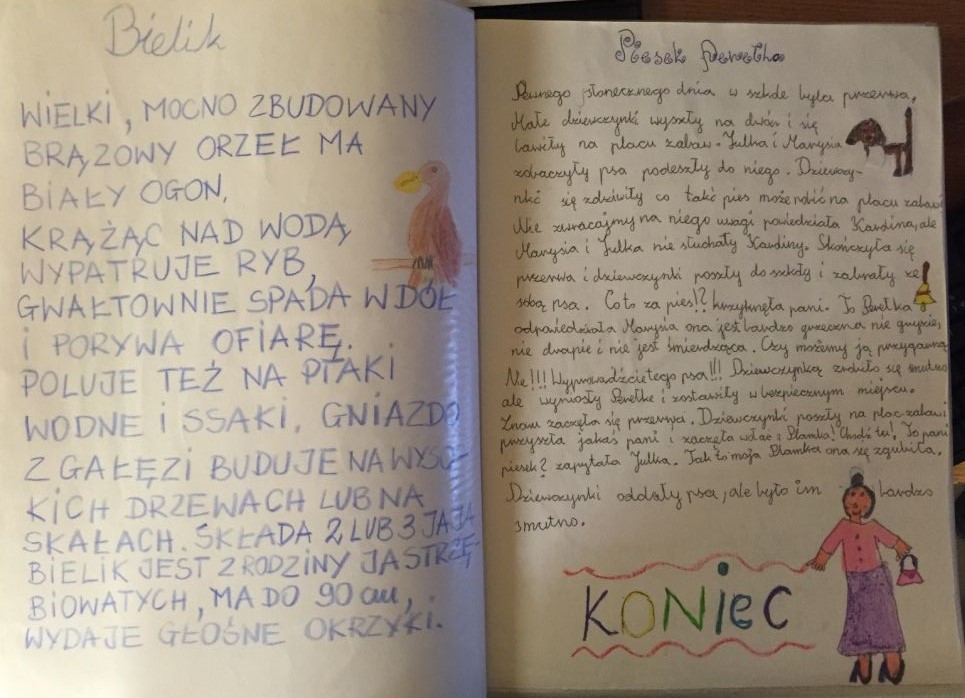 Bielik
WIELKI, MOCNO ZBUDOWANY
BRĄZOWY ORZEŁ MA
BIAŁY OGON,
KRĄŻĄC NAD WODĄ,
WYPATRUJE RYB,
GWAŁTOWNIE SPADA W DÓŁ
I PORYWA OFIARĘ.
POLUJE TEŻ NA PTAKI
WODNE I SSAKI, GNIAZDO
Z GAŁĘZI BUDUJE NA WYSO-
KICH DRZEWACH LUB NA
SKAŁACH. SKŁADA 2 LUB 3 JAJA
BIELIK JEST Z RODZINY JASTRZĘ-
BIOWATYCH, MA DO 90 cm,
WYDAJE GŁOŚNE OKRZYKI.
Piesek Perełka
Pewnego słonecznego dnia w szkole była przerwa,
Małe dziewczynki wyszły na dwór i się
bawiły na placu zabaw. Julka i Marysia
zobaczyły psa podeszły do niego. Dziewczy-
nki się zdziwiły co taki pies może robić na placu zabaw
Nie zwracajmy na niego uwagi powiedziała Karolina, ale
Marysia i Julka nie słuchały Karoliny. Skończyła się
przerwa i dziewczynki poszły do szkoły i zabrały ze
sobą psa. Co to za pies!? krzyknęła pani. To Perełka
odpowiedziała Marysia ona jest bardzo grzeczna nie gryzie,
nie drapie i nie jest śmierdząca. Czy możemy ją przygarnąć
Nie!!! Wyprowadźcie tego psa!!! Dziewczynką zrobiło się smutno
ale wyniosły Perełke i zostawiły w bezpiecznym miejscu.
Znowu zaczęła się przerwa. Dziewczynki poszły na plac zabaw i
przyszła jakaś pani i zaczęła wołać: Plamka! Chodź tu! To pani
piesek? zapytała Julka. Tak to moja Plamka ona się zgubiła.
Dziewczynki oddały psa, ale było im bardzo
smutno.
KONiEC